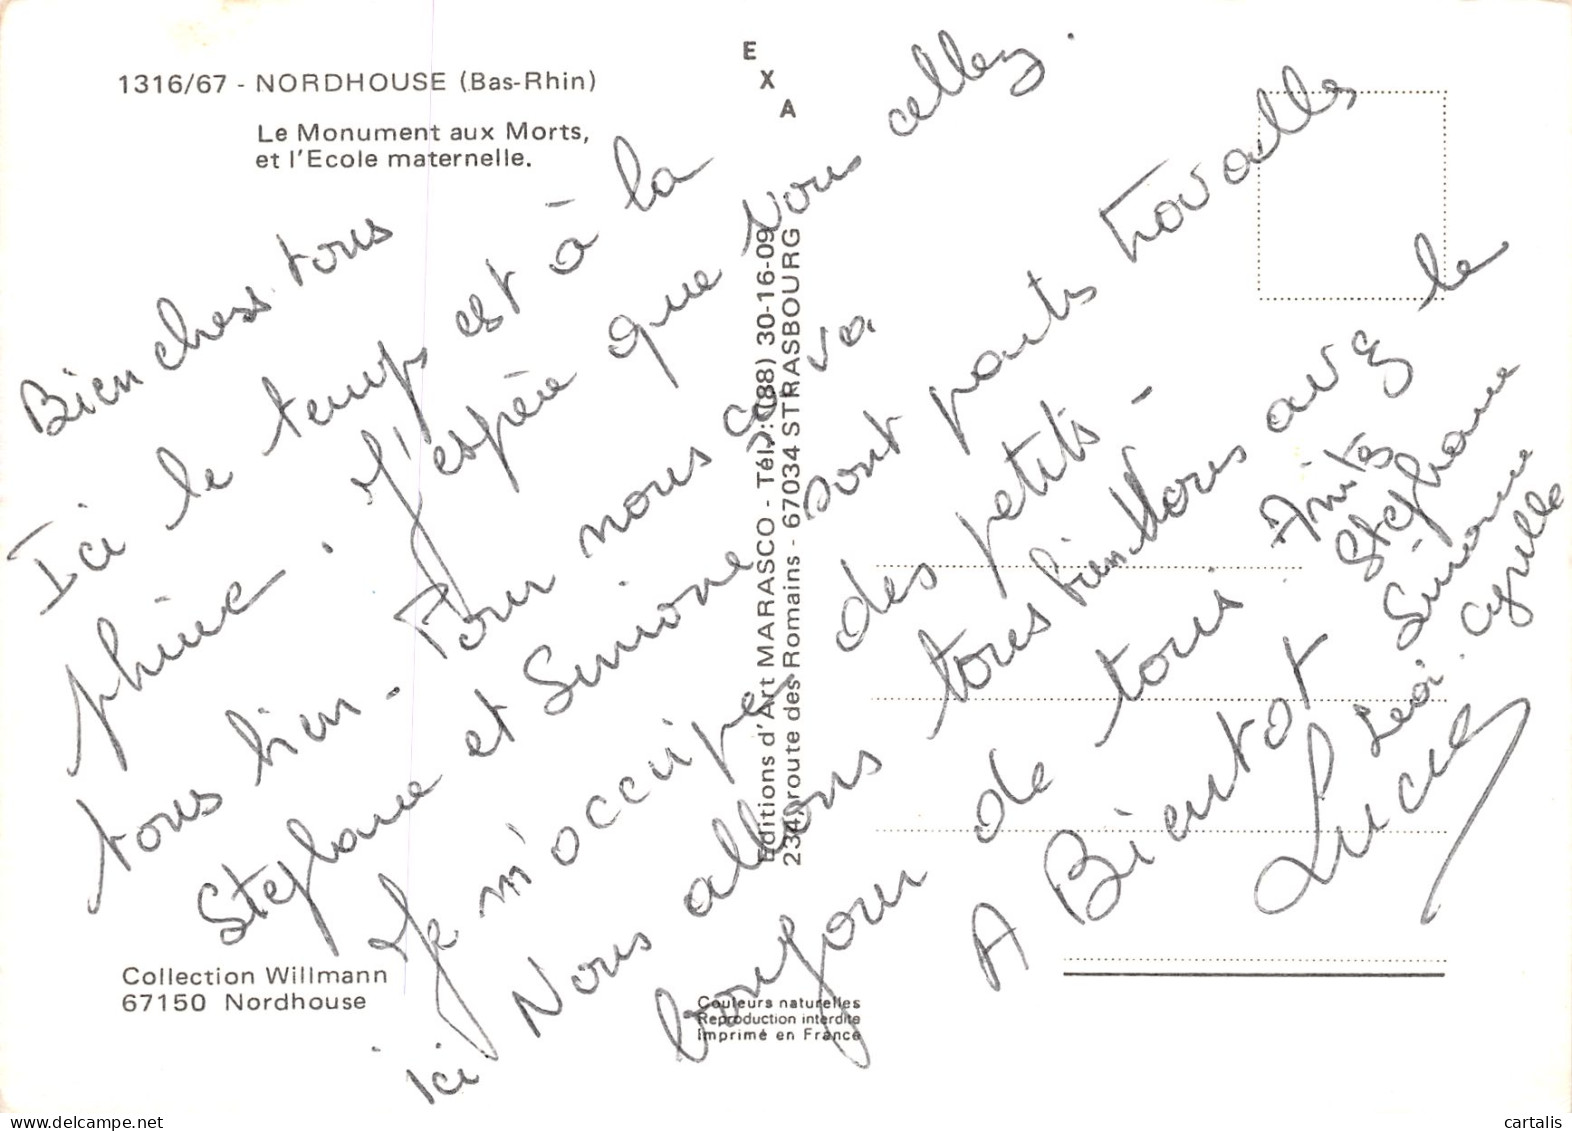 1316/67 - NORDHOUSE (Bas-Rhin)
Le Monument aux Morts,
et l'Ecole maternelle.
E
X
A
Bien chers tous
Ici le temps est à la
phuie. J'espère que vous allez
tous bien - Pour nous ça va.
Stephane et Simone sont parts travaller
Je m'occupe des petits -
ici Nous allons tous bien Nous avez le
bonjour de tous.
A Bientot Amités
Stephane
Simone
Leoi. Cyrille
Lucie
Editions d'Art MARASCO - Tél. : (88) 30-16-09
234, route des Romains - 67034 STRASBOURG
Collection Willmann
67150 Nordhouse
Couleurs naturelles
Reproduction interdite
Imprimé en France
cartalis